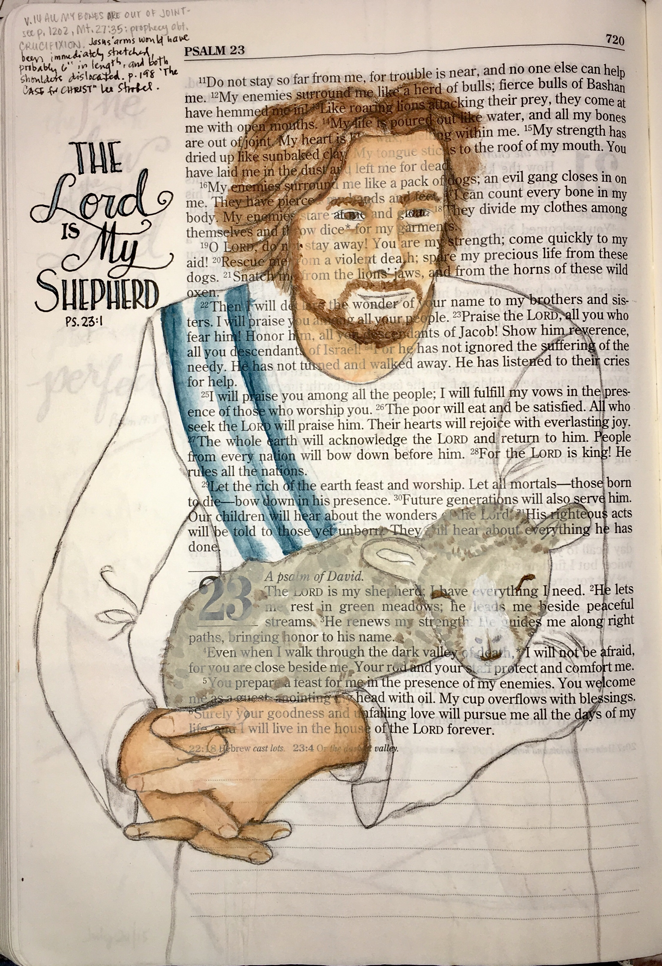 V. 14 ALL MY BONES ARE OUT OF JOINT-
see p. 1202, Mt. 27:35: prophecy abt.
CRUCIFIXION. Jesus' arms would have
been immediately stretched,
probably 6" in length, and both
shoulders dislocated. p. 198 "The
CASE for CHRIST" Lee Strobel.
THE
Lord
IS
My
SHEPHERD
PS. 23:1
PSALM 23
720
11Do not stay so far from me, for trouble is near, and no one else can help
me. 12My enemies surround me like a herd of bulls; fierce bulls of Bashan
have hemmed me in! 13Like roaring lions attacking their prey, they come at
me with open mouths. 14My life is poured out like water, and all my bones
are out of joint. My heart is melting within me. 15My strength has
dried up like sunbaked clay. My tongue sticks to the roof of my mouth. You
have laid me in the dust and left me for dead.
16My enemies surround me like a pack of dogs; an evil gang closes in on
me. They have pierced my hands and feet. I can count every bone in my
body. My enemies stare at me and gloat. They divide my clothes among
themselves and throw dice for my garments.
19O LORD, do not stay away! You are my strength; come quickly to my
aid! 20Rescue me from a violent death; spare my precious life from these
dogs. 21Snatch me from the lions' jaws, and from the horns of these wild
oxen.
22Then I will declare the wonder of your name to my brothers and sis-
ters. I will praise you among all your people. 23Praise the LORD, all you who
fear him! Honor him, all you descendants of Jacob! Show him reverence,
all you descendants of Israel! 24For he has not ignored the suffering of the
needy. He has not turned and walked away. He has listened to their cries
for help.
25I will praise you among all the people; I will fulfill my vows in the pres-
ence of those who worship you. 26The poor will eat and be satisfied. All who
seek the LORD will praise him. Their hearts will rejoice with everlasting joy.
27The whole earth will acknowledge the LORD and return to him. People
from every nation will bow down before him. 28For the LORD is king! He
rules all the nations.
29Let the rich of the earth feast and worship. Let all mortals—those born
to die—bow down in his presence. 30Future generations will also serve him.
Our children will hear about the wonders of the Lord. 31His righteous acts
will be told to those yet unborn. They will hear about everything he has
done.
23 A psalm of David.
The LORD is my shepherd; I have everything I need. 2He lets
me rest in green meadows; he leads me beside peaceful
streams. 3He renews my strength. He guides me along right
paths, bringing honor to his name.
4Even when I walk through the dark valley of death, I will not be afraid,
for you are close beside me. Your rod and your staff protect and comfort me.
5You prepare a feast for me in the presence of my enemies. You welcome
me as a guest, anointing my head with oil. My cup overflows with blessings.
6Surely your goodness and unfailing love will pursue me all the days of my
life, and I will live in the house of the LORD forever.
22:18 Hebrew cast lots. 23:4 Or the darkest valley.